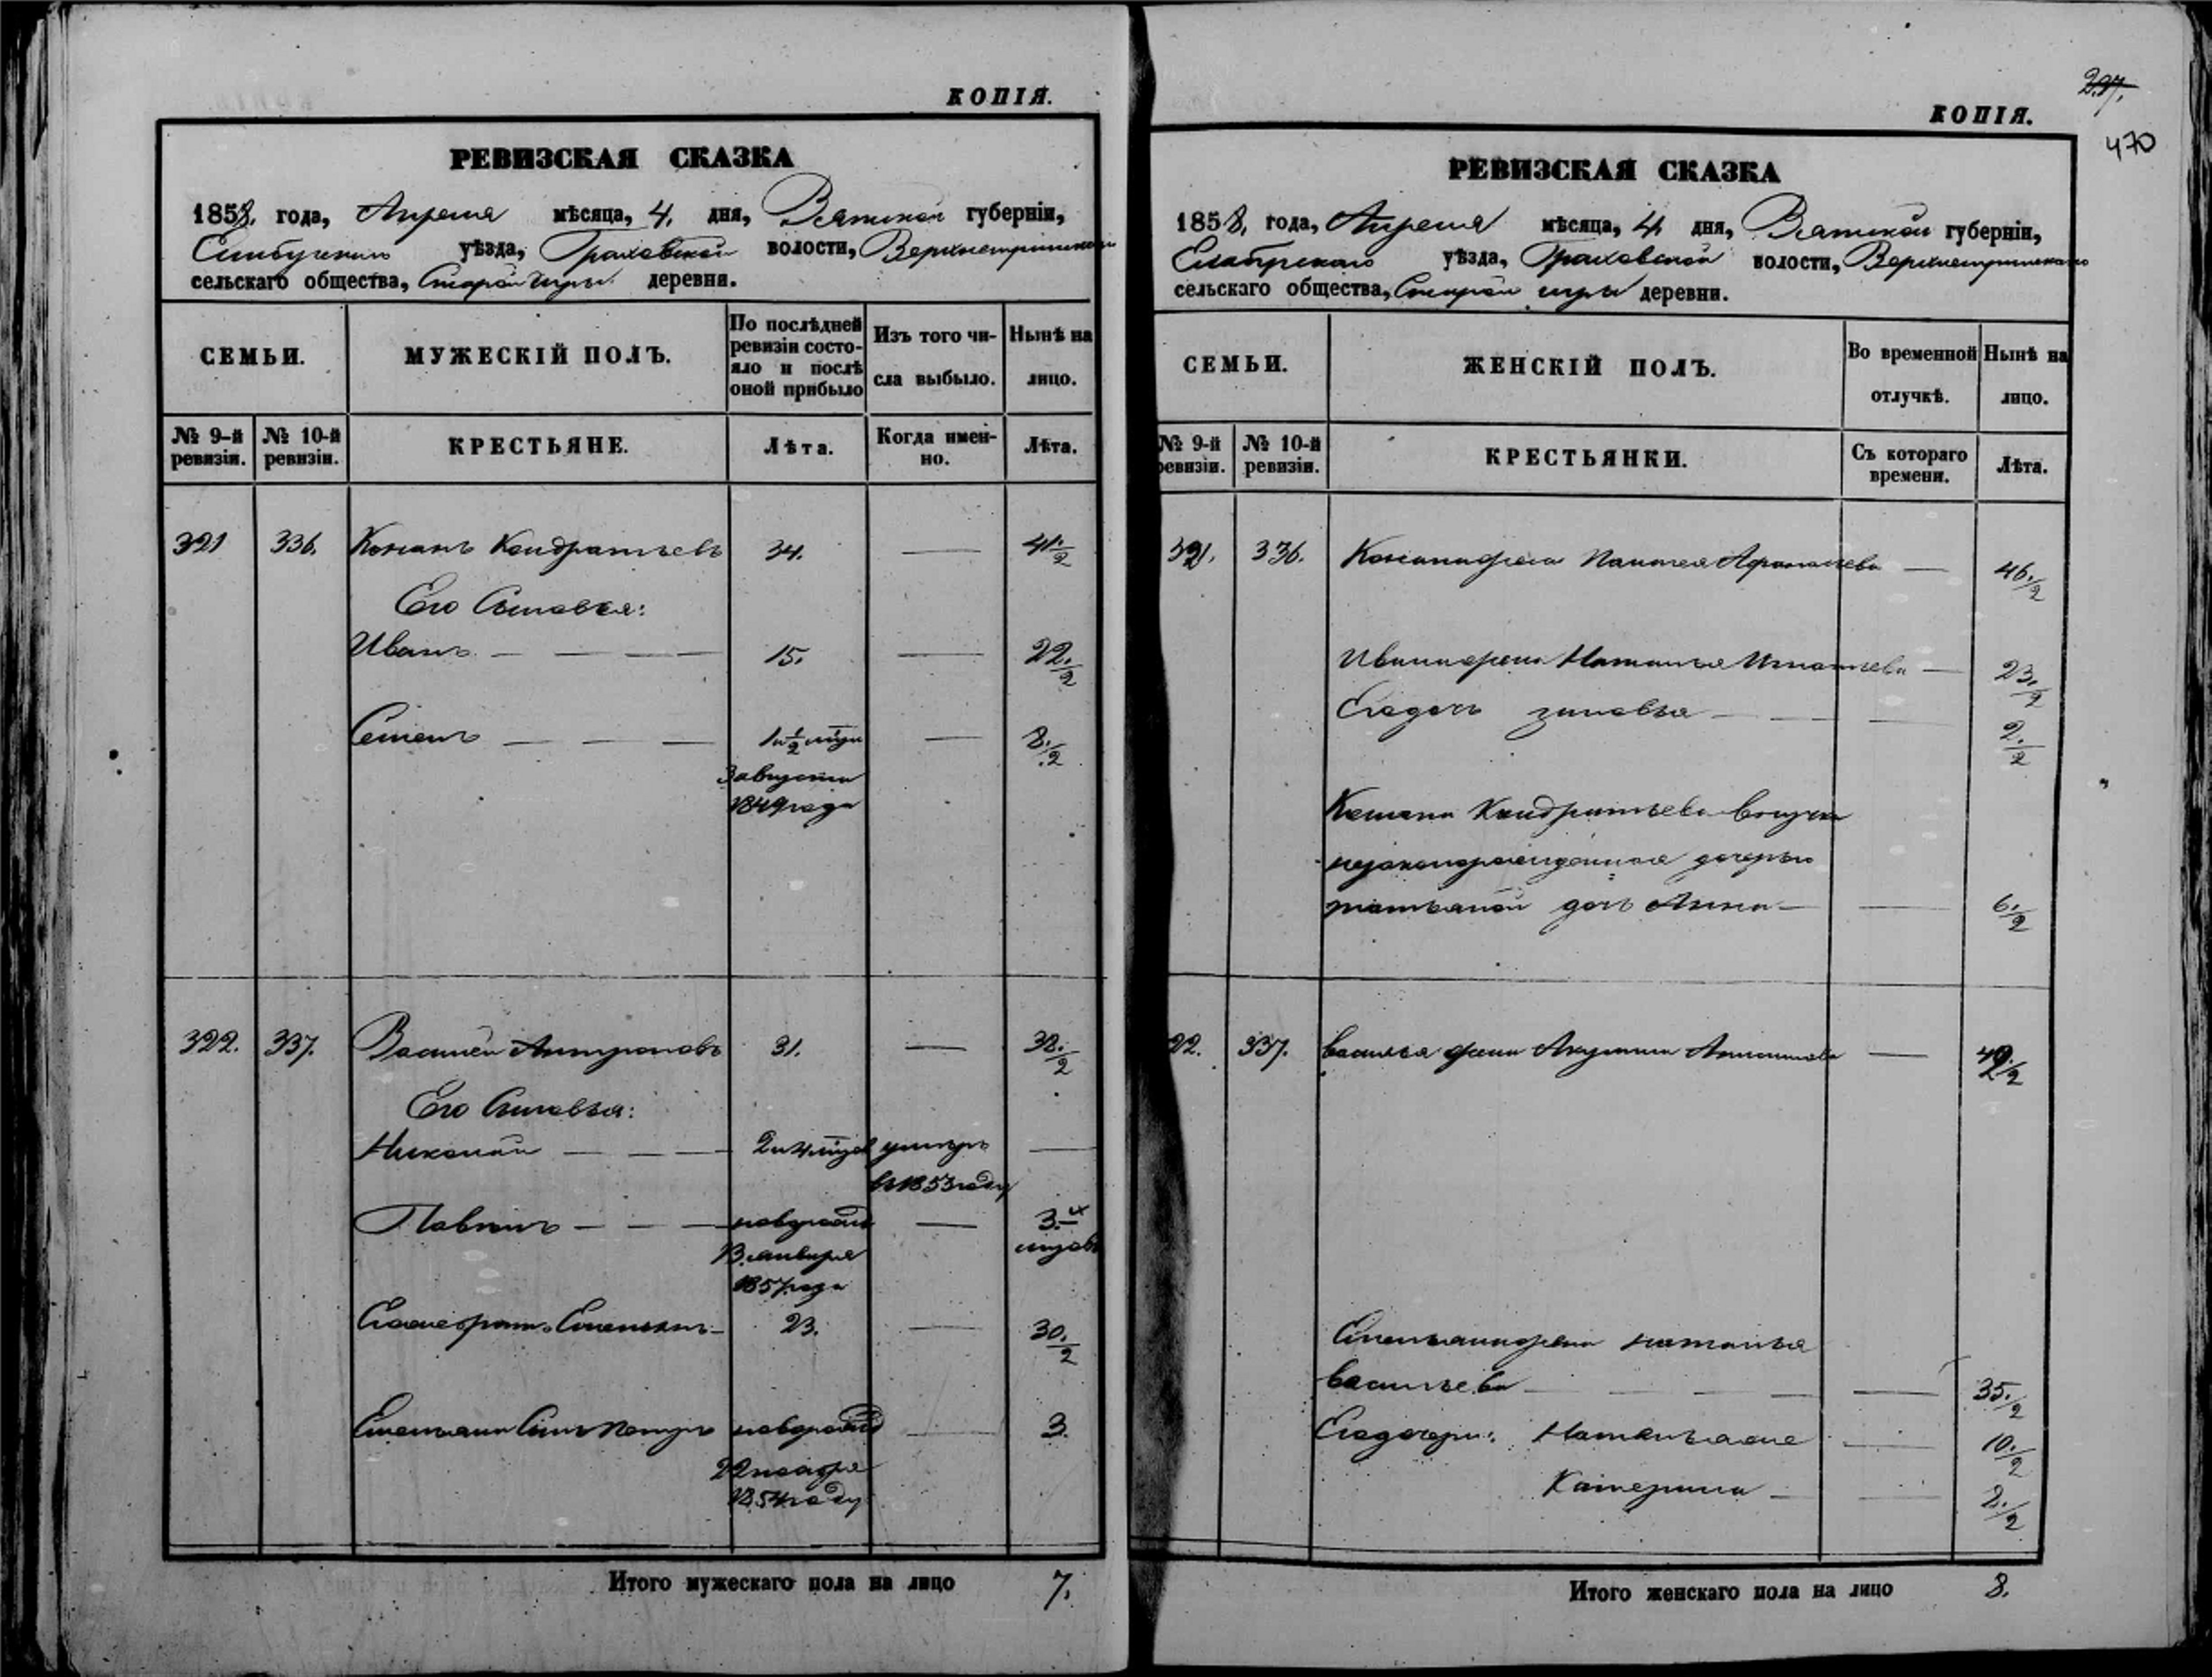 КОПІЯ.
РЕВИЗСКАЯ СКАЗКА
1858. года, Апреля мѣсяца, 4. дня, Вятской губерніи,
Елабужскаго уѣзда, Граховской волости,
сельскаго общества, Старой игры деревни.
СЕМЬИ.
МУЖЕСКІЙ ПОЛЪ.
По послѣдней
ревизіи состо-
яло и послѣ
оной прибыло
Изъ того чи-
сла выбыло.
Нынѣ на
лицо.
№ 9-й
ревизіи.
№ 10-й
ревизіи.
КРЕСТЬЯНЕ.
Лѣта.
Когда имен-
но.
Лѣта.
321 336. Конанъ Кондратьевъ 34. — 41./2
Его Сыновья:
Иванъ — — — 15. — 22./2
Семенъ — — — 1 и 1/2 — 8./2
3 августа
1849 года
322. 337. Василей Антроповъ 31. — 38./2
Его Сыновья:
Николай — — — умеръ —
в 1853 году
Павелъ — — — новорожд — 3. 4
мцовъ
Января
1857 года
Емельянъ — 23. — 30./2
Емельяна Сынъ Петръ новорожд — 3.
22 ноября
1854 году
Итого мужескаго пола на лицо 7.
297.
КОПІЯ.
470
РЕВИЗСКАЯ СКАЗКА
1858. года, Апреля мѣсяца, 4 дня, Вятской губерніи,
Елабужскаго уѣзда, Граховской волости,
сельскаго общества, Старой игры деревни.
СЕМЬИ.
ЖЕНСКІЙ ПОЛЪ.
Во временной
отлучкѣ.
Нынѣ на
лицо.
№ 9-й
ревизіи.
№ 10-й
ревизіи.
КРЕСТЬЯНКИ.
Съ котораго
времени.
Лѣта.
321. 336. Конана жена Афанасьева — 46./2
Ивана жена Наталья Игнатьева — 23./2
Его дочь зиновья — — 2./2
Конана Кондратьева внучка
незаконорожденная дочерью
татьяной дочь Анна — — 6./2
22. 337. василья жена Акулина — 40./2
Емельяна жена наталья
васильева — — — — 35./2
Его дочери: — 10./2
Катерина — — 2./2
Итого женскаго пола на лицо 8.